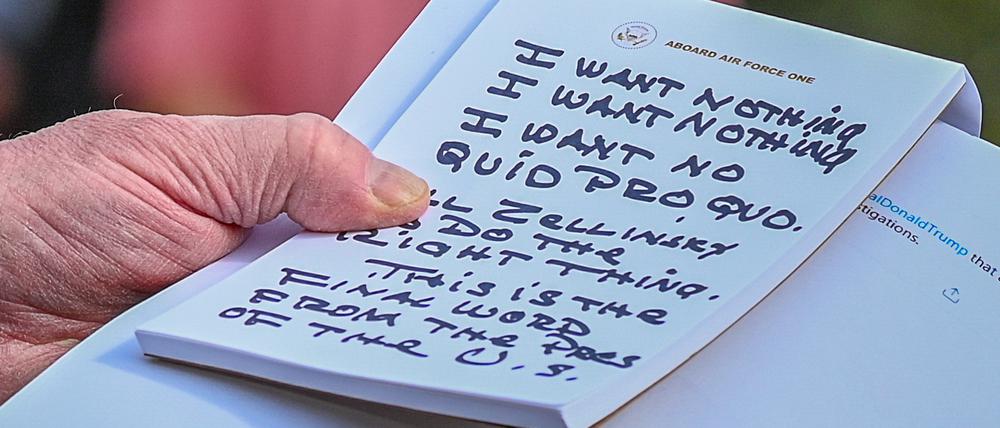 ABOARD AIR FORCE ONE
I WANT NOTHING
I WANT NOTHING
I WANT NO
QUID PRO QUO.
LL ZELLINSKY
DO THE
RIGHT THING.
THIS IS THE
FINAL WORD
FROM THE PRES
OF THE U.S.
alDonaldTrump that
tigations.